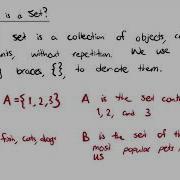 is a Set?
set is a collection of objects, c
nts, without repetition. We use
y braces, {}, to denote them.
A = {1, 2, 3} A is the set cont
1, 2, and 3
fish, cats, dogs B is the set of th
most popular pets
US